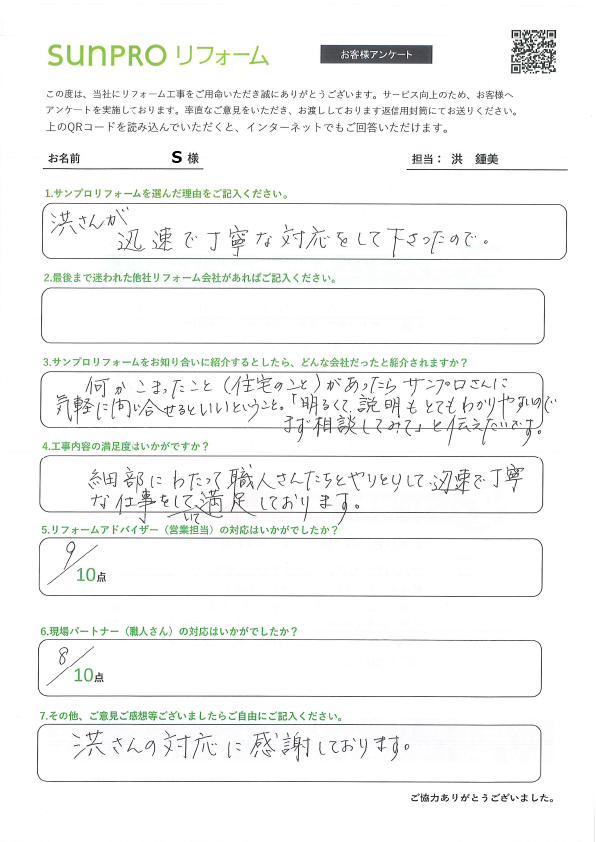 SUNPRO リフォーム
お客様アンケート
この度は、当社にリフォーム工事をご用命いただき誠にありがとうございます。サービス向上のため、お客様へ
アンケートを実施しております。率直なご意見をいただき、お渡ししております返信用封筒にてお送りください。
上のQRコードを読み込んでいただくと、インターネットでもご回答いただけます。
お名前 S 様
担当: 洪 鍾美
1.サンプロリフォームを選んだ理由をご記入ください。
洪さんが
迅速で丁寧な対応をして下さったので。
2.最後まで迷われた他社リフォーム会社があればご記入ください。
3.サンプロリフォームをお知り合いに紹介するとしたら、どんな会社だったと紹介されますか?
何かこまったこと(住宅のこと)があったらサンプロさんに
気軽に問い合せるといいということ。「明るくて、説明もとてもわかりやすいので
まず相談してみて」と伝えたいです。
4.工事内容の満足度はいかがですか?
細部にわたって職人さんたちとやりとりして、迅速で丁寧
な仕事をして満足しております。
いて
5.リフォームアドバイザー(営業担当)の対応はいかがでしたか?
9
10点
6.現場パートナー(職人さん)の対応はいかがでしたか?
8
10点
7.その他、ご意見ご感想等ございましたらご自由にご記入ください。
洪さんの対応に感謝しております。
ご協力ありがとうございました。